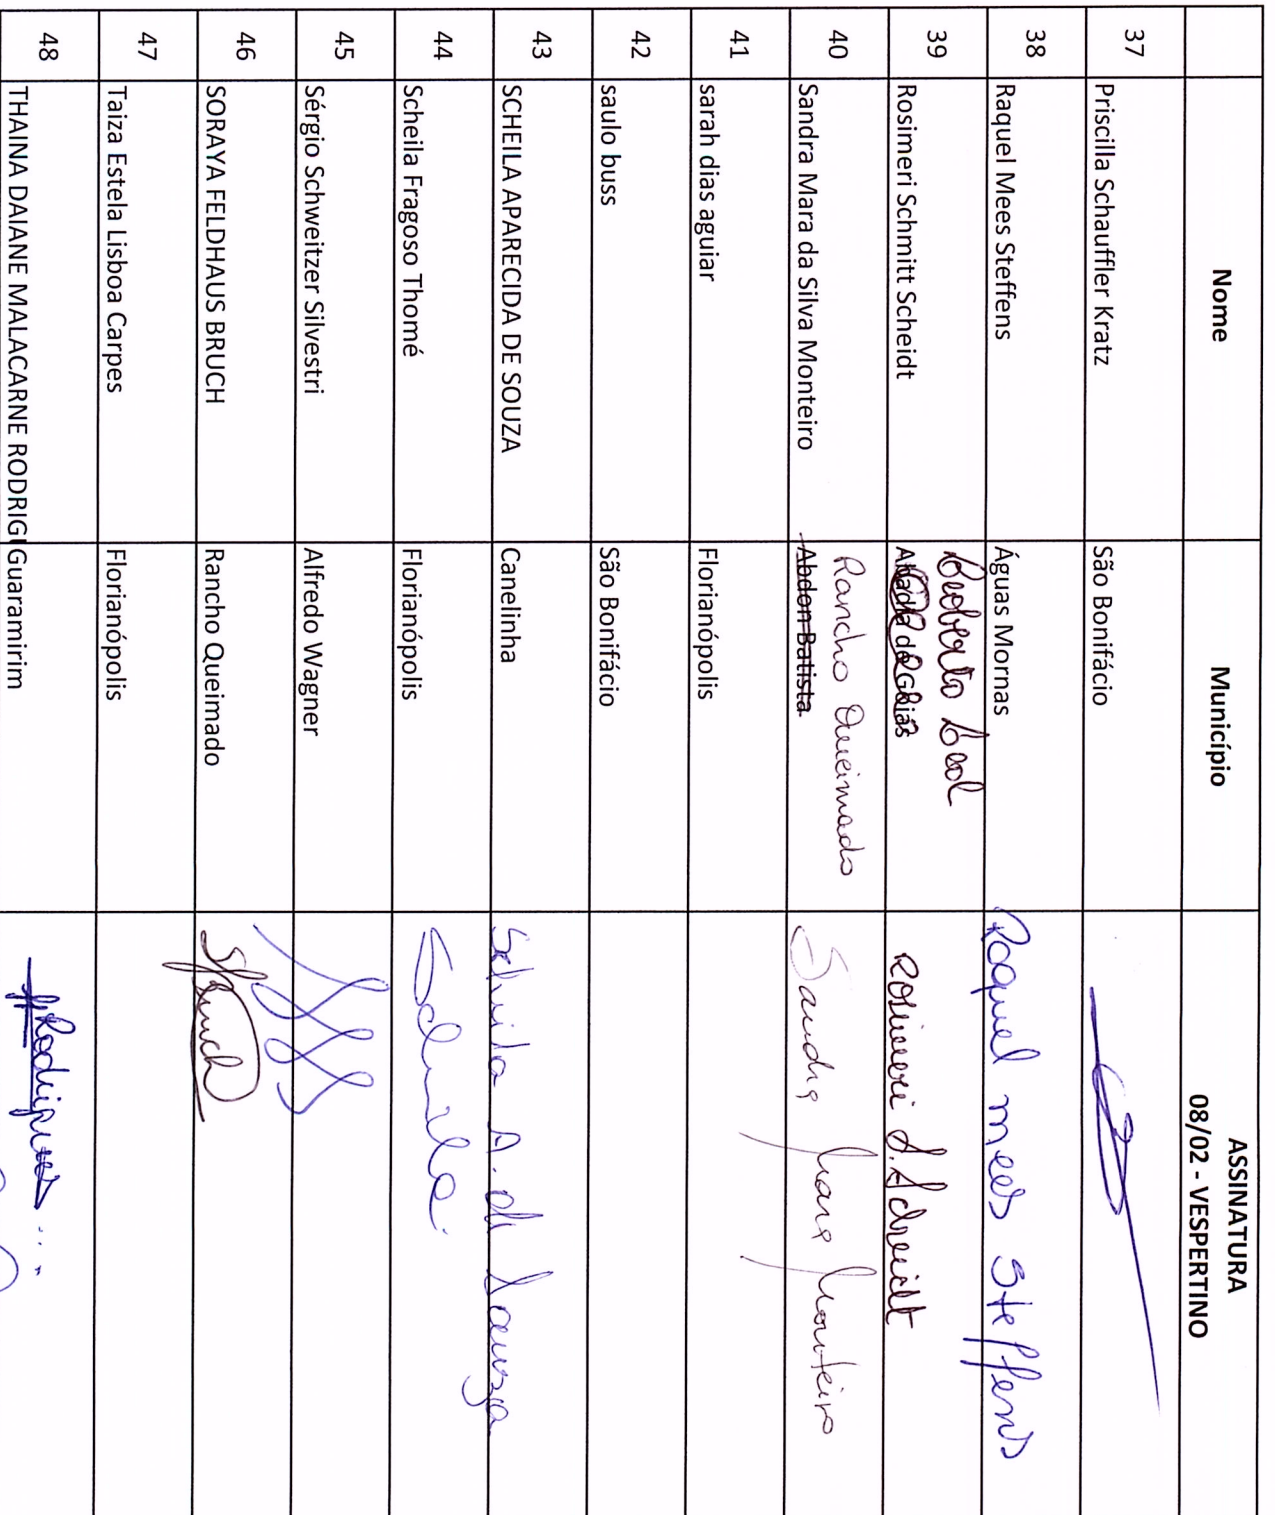 Nome Município ASSINATURA
08/02 - VESPERTINO
37 Priscilla Schauffler Kratz São Bonifácio
38 Raquel Mees Steffens Águas Mornas Raquel mees Steffens
39 Rosimeri Schmitt Scheidt Leoberto Leal Rosimeri S. Scheidt
40 Sandra Mara da Silva Monteiro Abdon Batista Rancho Queimado Sandra Mara Monteiro
41 sarah dias aguiar Florianópolis
42 saulo buss São Bonifácio
43 SCHEILA APARECIDA DE SOUZA Canelinha Scheila A. de Souza
44 Scheila Fragoso Thomé Florianópolis Scheila
45 Sérgio Schweitzer Silvestri Alfredo Wagner
46 SORAYA FELDHAUS BRUCH Rancho Queimado
47 Taiza Estela Lisboa Carpes Florianópolis
48 THAINA DAIANE MALACARNE RODRIG Guaramirim Rodrigues